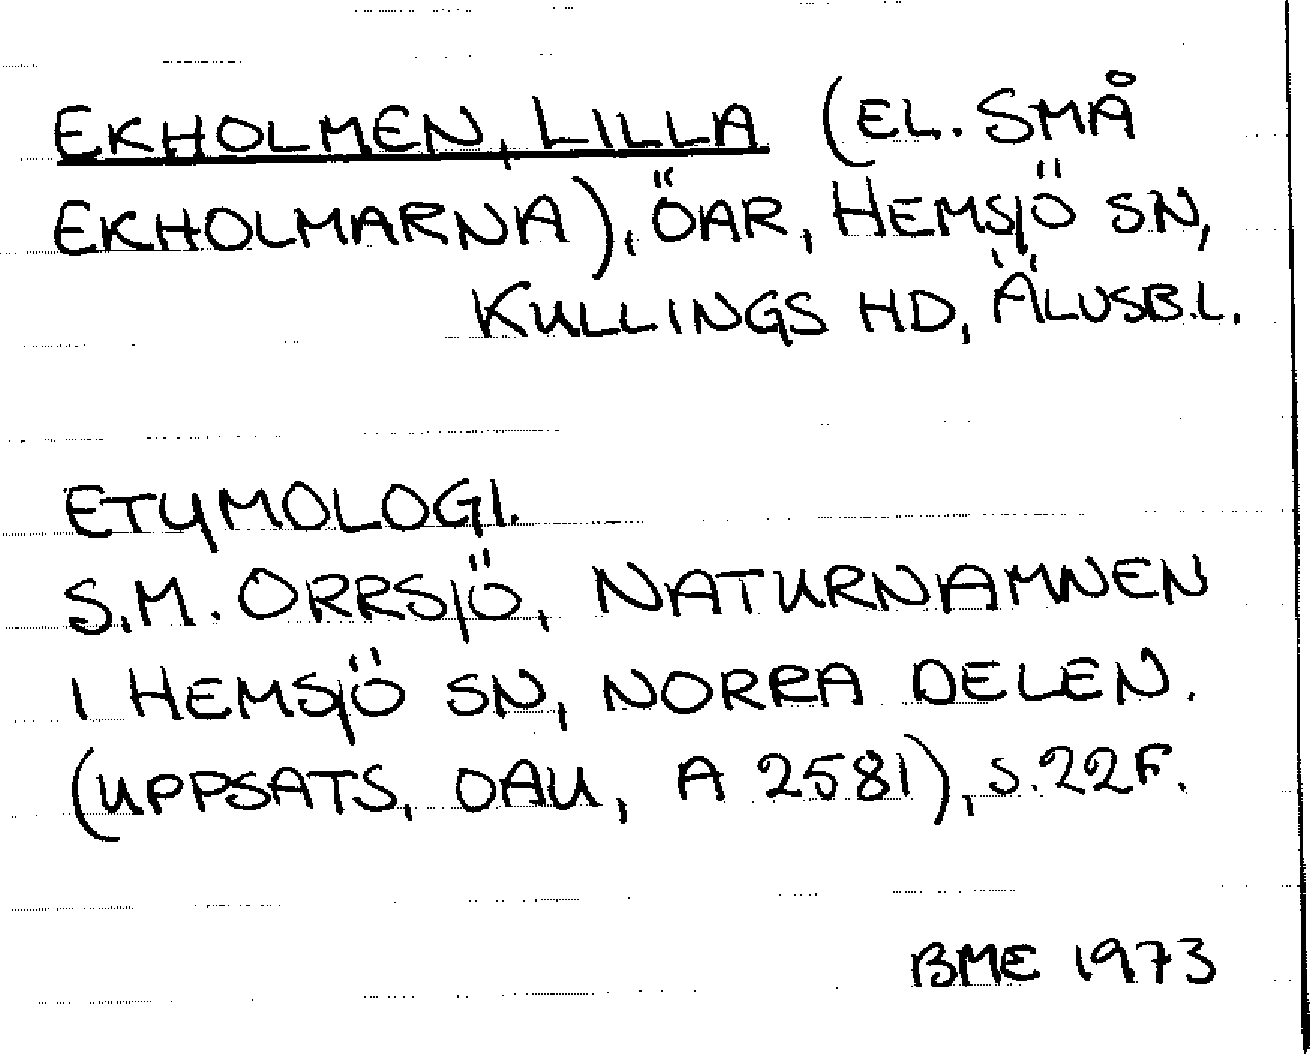 EKHOLMEN, LILLA (EL. SMÅ
EKHOLMARNA), ÖAR, HEMSJÖ SN,
KULLINGS HD, ÄLVSB.L.
ETYMOLOGI.
S.M. ORRSJÖ, NATURNAMNEN
I HEMSJÖ SN, NORRA DELEN.
(UPPSATS, OAU, A 2581), S. 22F.
BME 1973